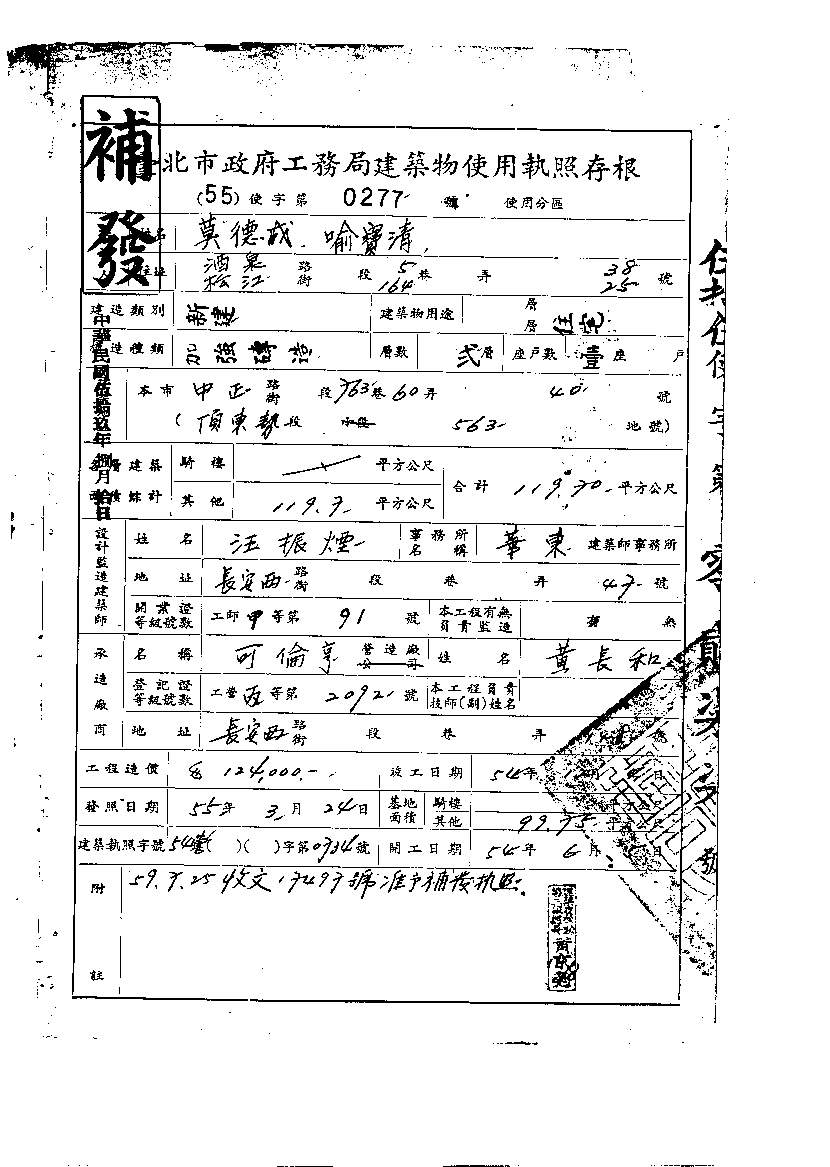 補發
北市政府工務局建築物使用執照存根
(55) 使字第 0277 號 使用分區
姓名 莫德成、喻寶清
住址 酒泉 松江 路街 段 5 164 巷 弄 38 25 號
建造類別 新建 建築物用途 層 層 住宅
構造種類 加強磚造 層數 弍層 座戶數 壹座 戶
中華民國伍拾玖年捌月拾日
本市 中正 路街 段 763 巷 60 弄 40 號
(頂東勢 段 小段 563 地號)
各層建築面積綜計 騎樓 平方公尺 合計 119.70 平方公尺
其他 119.7 平方公尺
設計監造建築師
姓名 汪振煙 事務所名稱 華東 建築師事務所
地址 長安西 路街 段 巷 弄 47 號
開業證等級號數 工師甲等第 91 號 本工程有無負責監造 無
承造廠商
名稱 可倫亨 營造廠公司 姓名 黃長和
登記證等級號數 工營丙等第 2092 號 本工程負責技師(副)姓名
地址 長安西 路街 段 巷 弄 號
工程造價 124,000.- 竣工日期 54年 月 日
發照日期 55年 3月 24日 基地面積 騎樓 平方公尺
其他 99.75 平方公尺
建築執照字號 54 ( )( )字第0734號 開工日期 54年 6月 日
附註
59.7.25收文17497號准予補發執照
字第零貳柒柒號